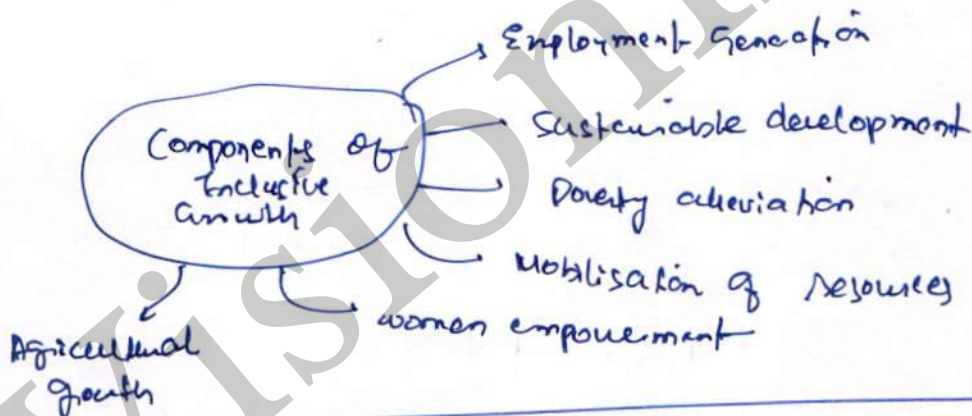 Components of
Inclusive
Growth
Employment Generation
Sustainable development
Poverty alleviation
Mobilisation of resources
women empowerment
Agricultural
growth
Vision